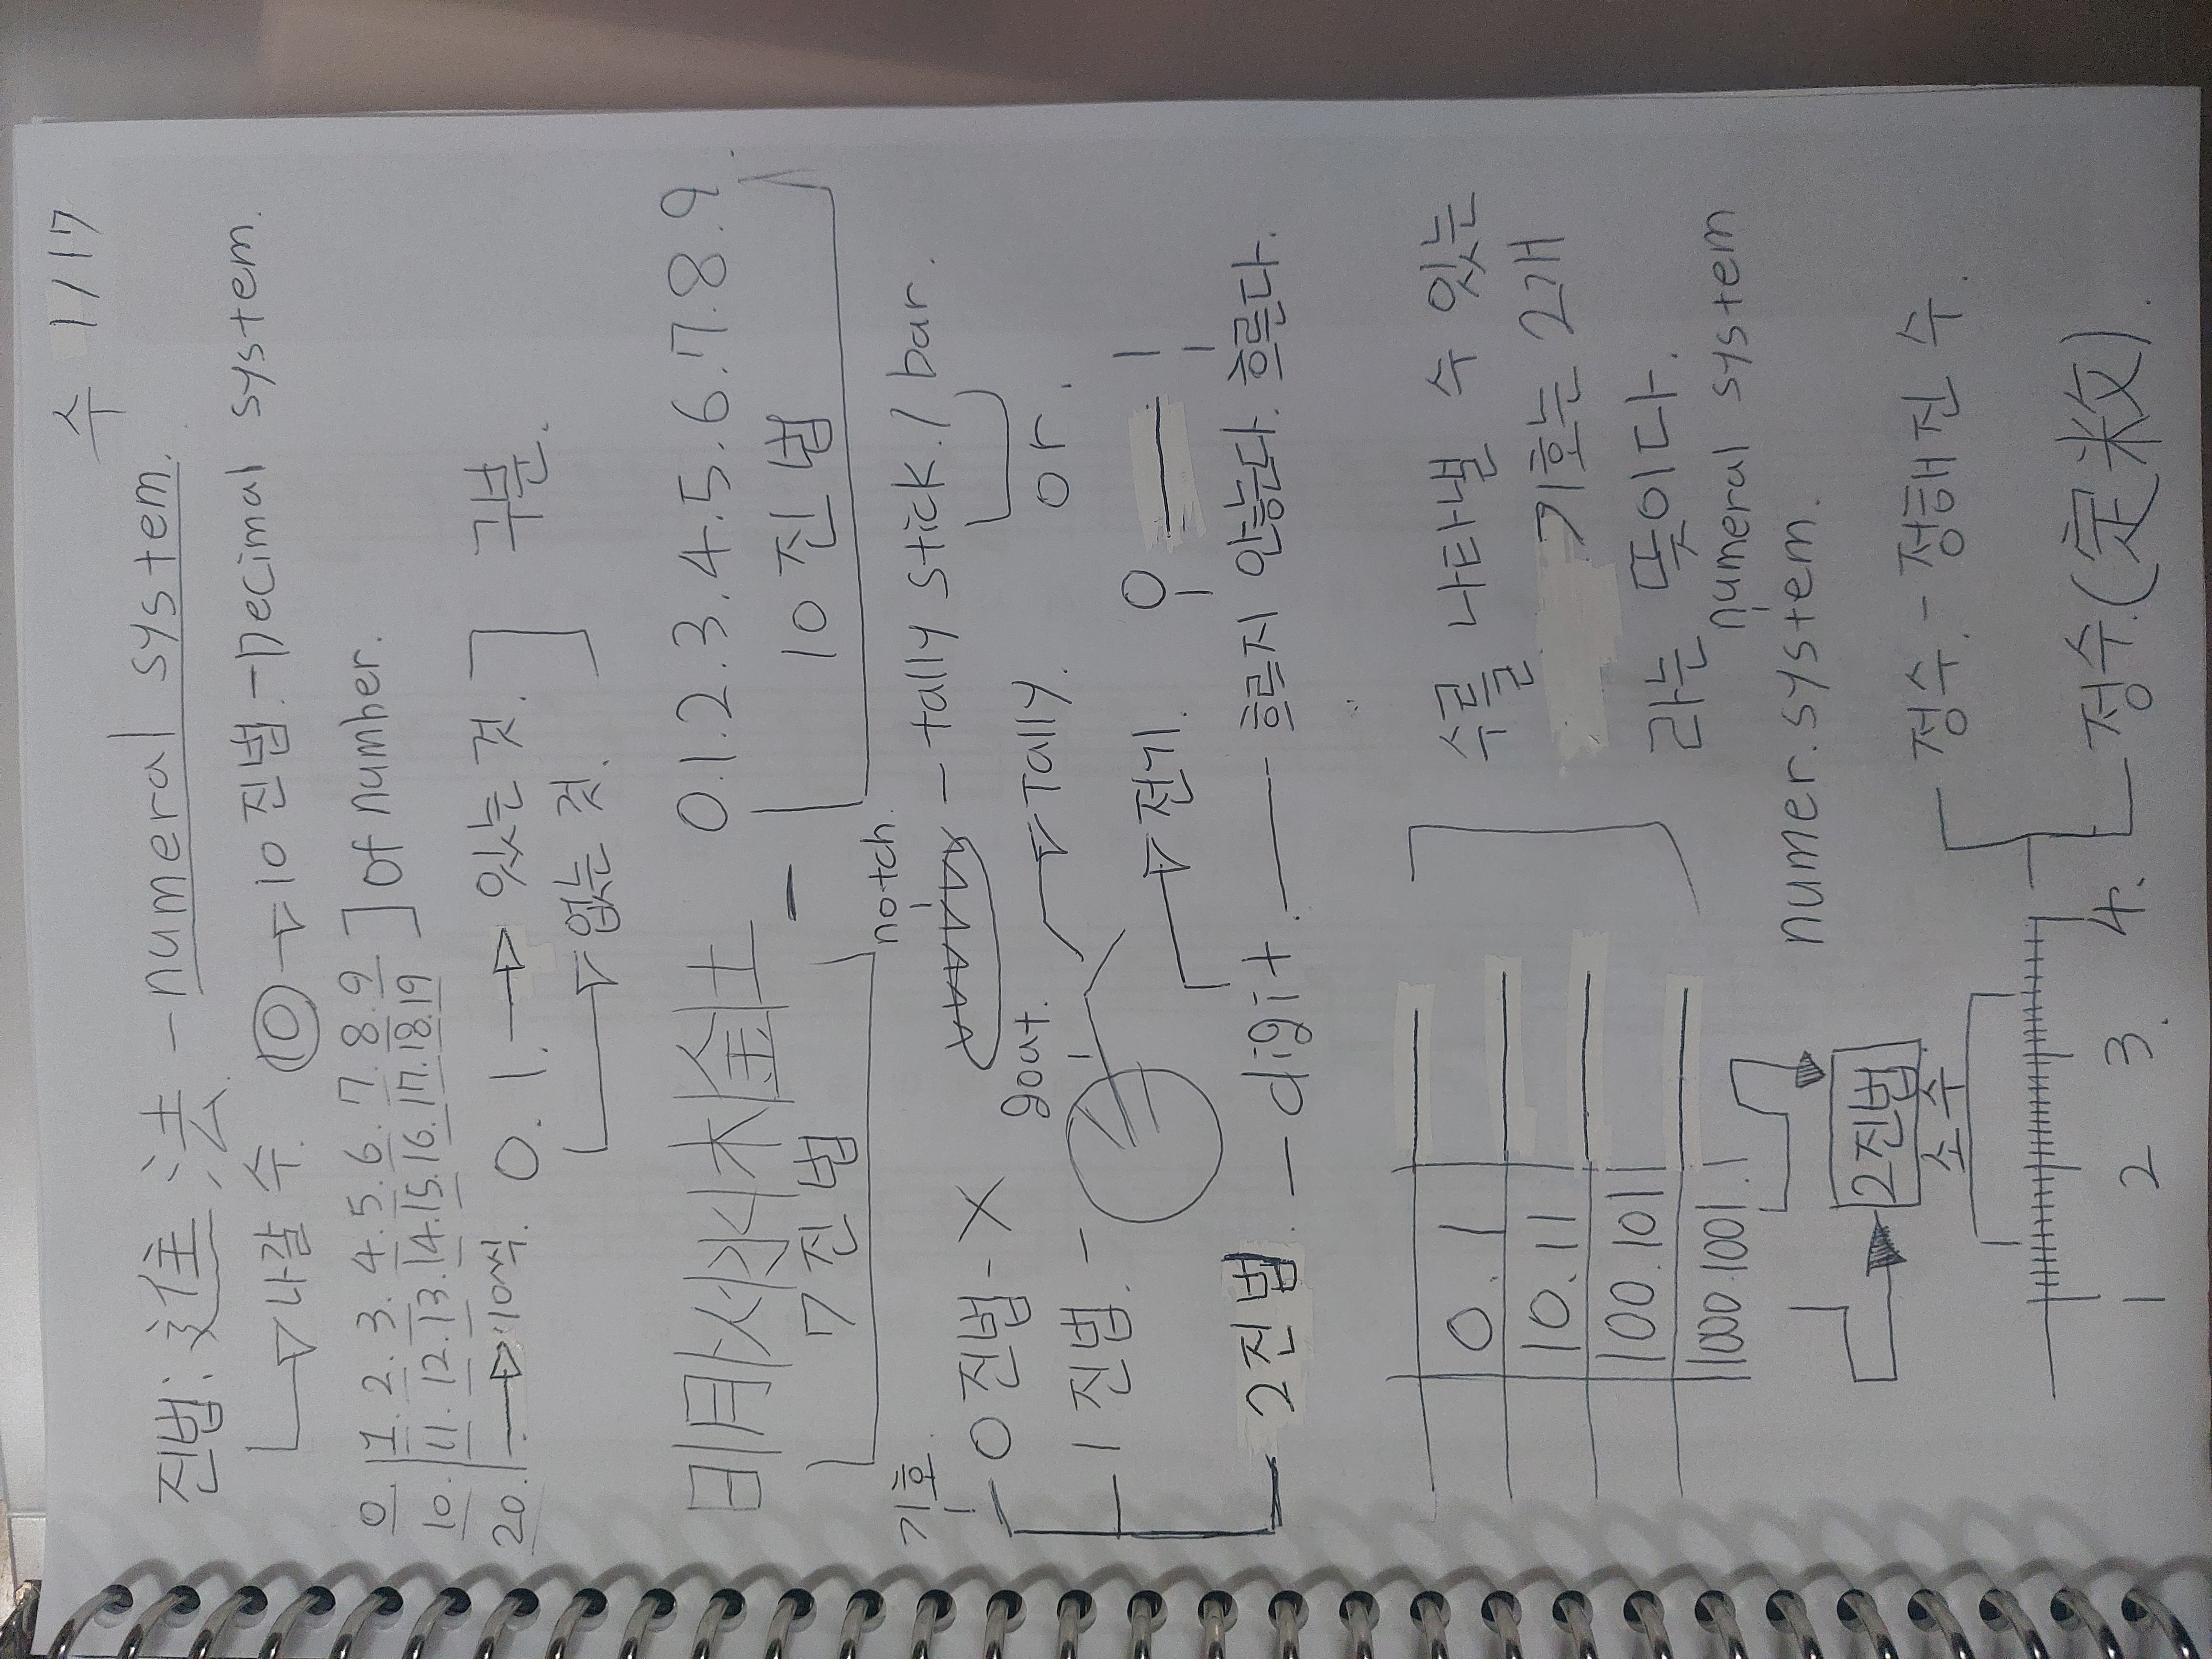 수 1/17
진법: 進法 - numeral system.
나갈 수. 10 10진법. - Decimal system.
0 1. 2. 3. 4. 5. 6. 7. 8. 9
10. 11. 12. 13. 14. 15. 16. 17. 18. 19 of number.
20. 10씩. 0. 1. 있는 것. 구분.
없는 것.
木 金 土 - 0.1.2.3.4.5.6.7.8.9
7진법 10진법
기호. notch.
0진법 - X - tally stick. / bar.
goat. Tally. or.
1진법. - 전기. 0 1
2진법. - digit. 흐르지 않는다. 흐른다.
0. 1 수를 나타낼 수 있는
10. 11 기호는 2개
100. 101 라는 뜻이다.
numeral system
1000. 1001. numer.system.
2진법
소수 정수. - 정해진 수.
1 2 3. 4. 정수.(定数).